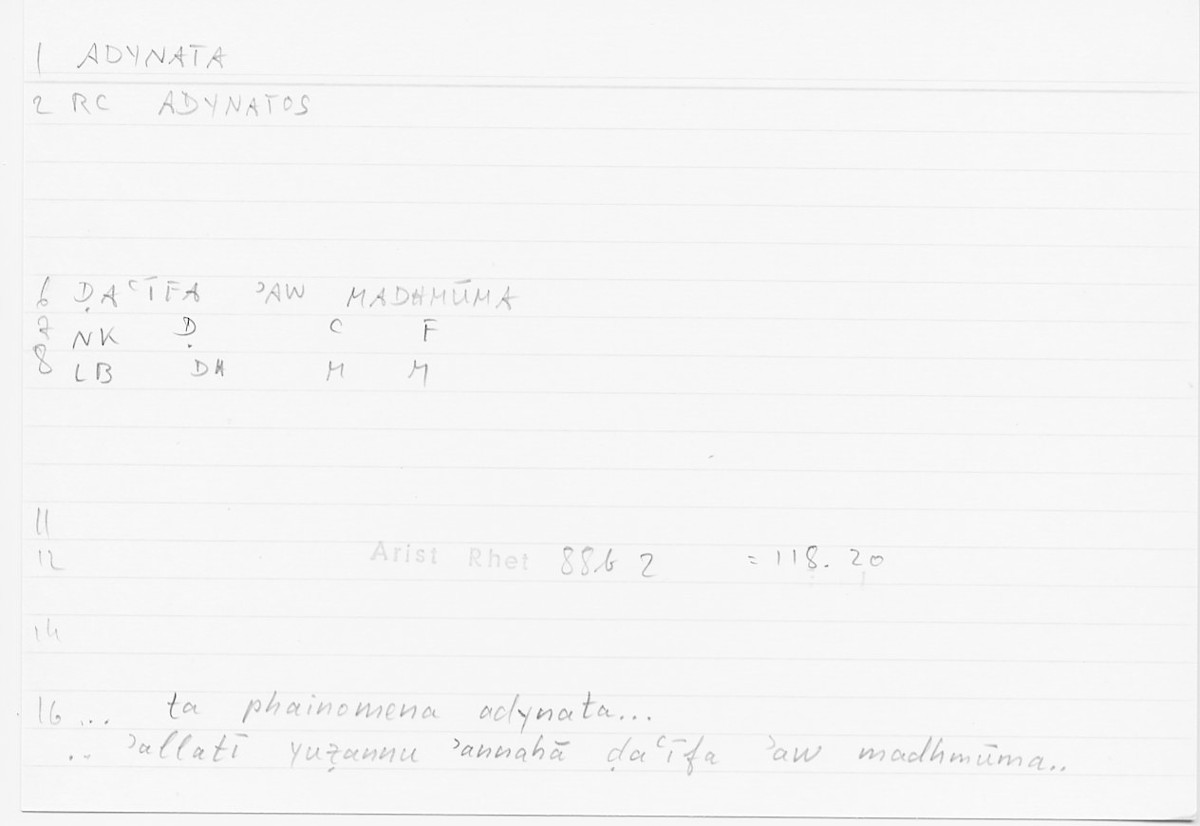 1 ADYNATA
2 RC ADYNATOS
6 ḌAʿĪFA ʾAW MADHMŪMA
7 NK Ḍ ʿ F
8 LB DH M M
11
12 Arist Rhet 88b 2 = 118. 20
14
16 ... ta phainomena adynata...
.. ʾallatī yuẓannu ʾannahā ḍaʿīfa ʾaw madhmūma..